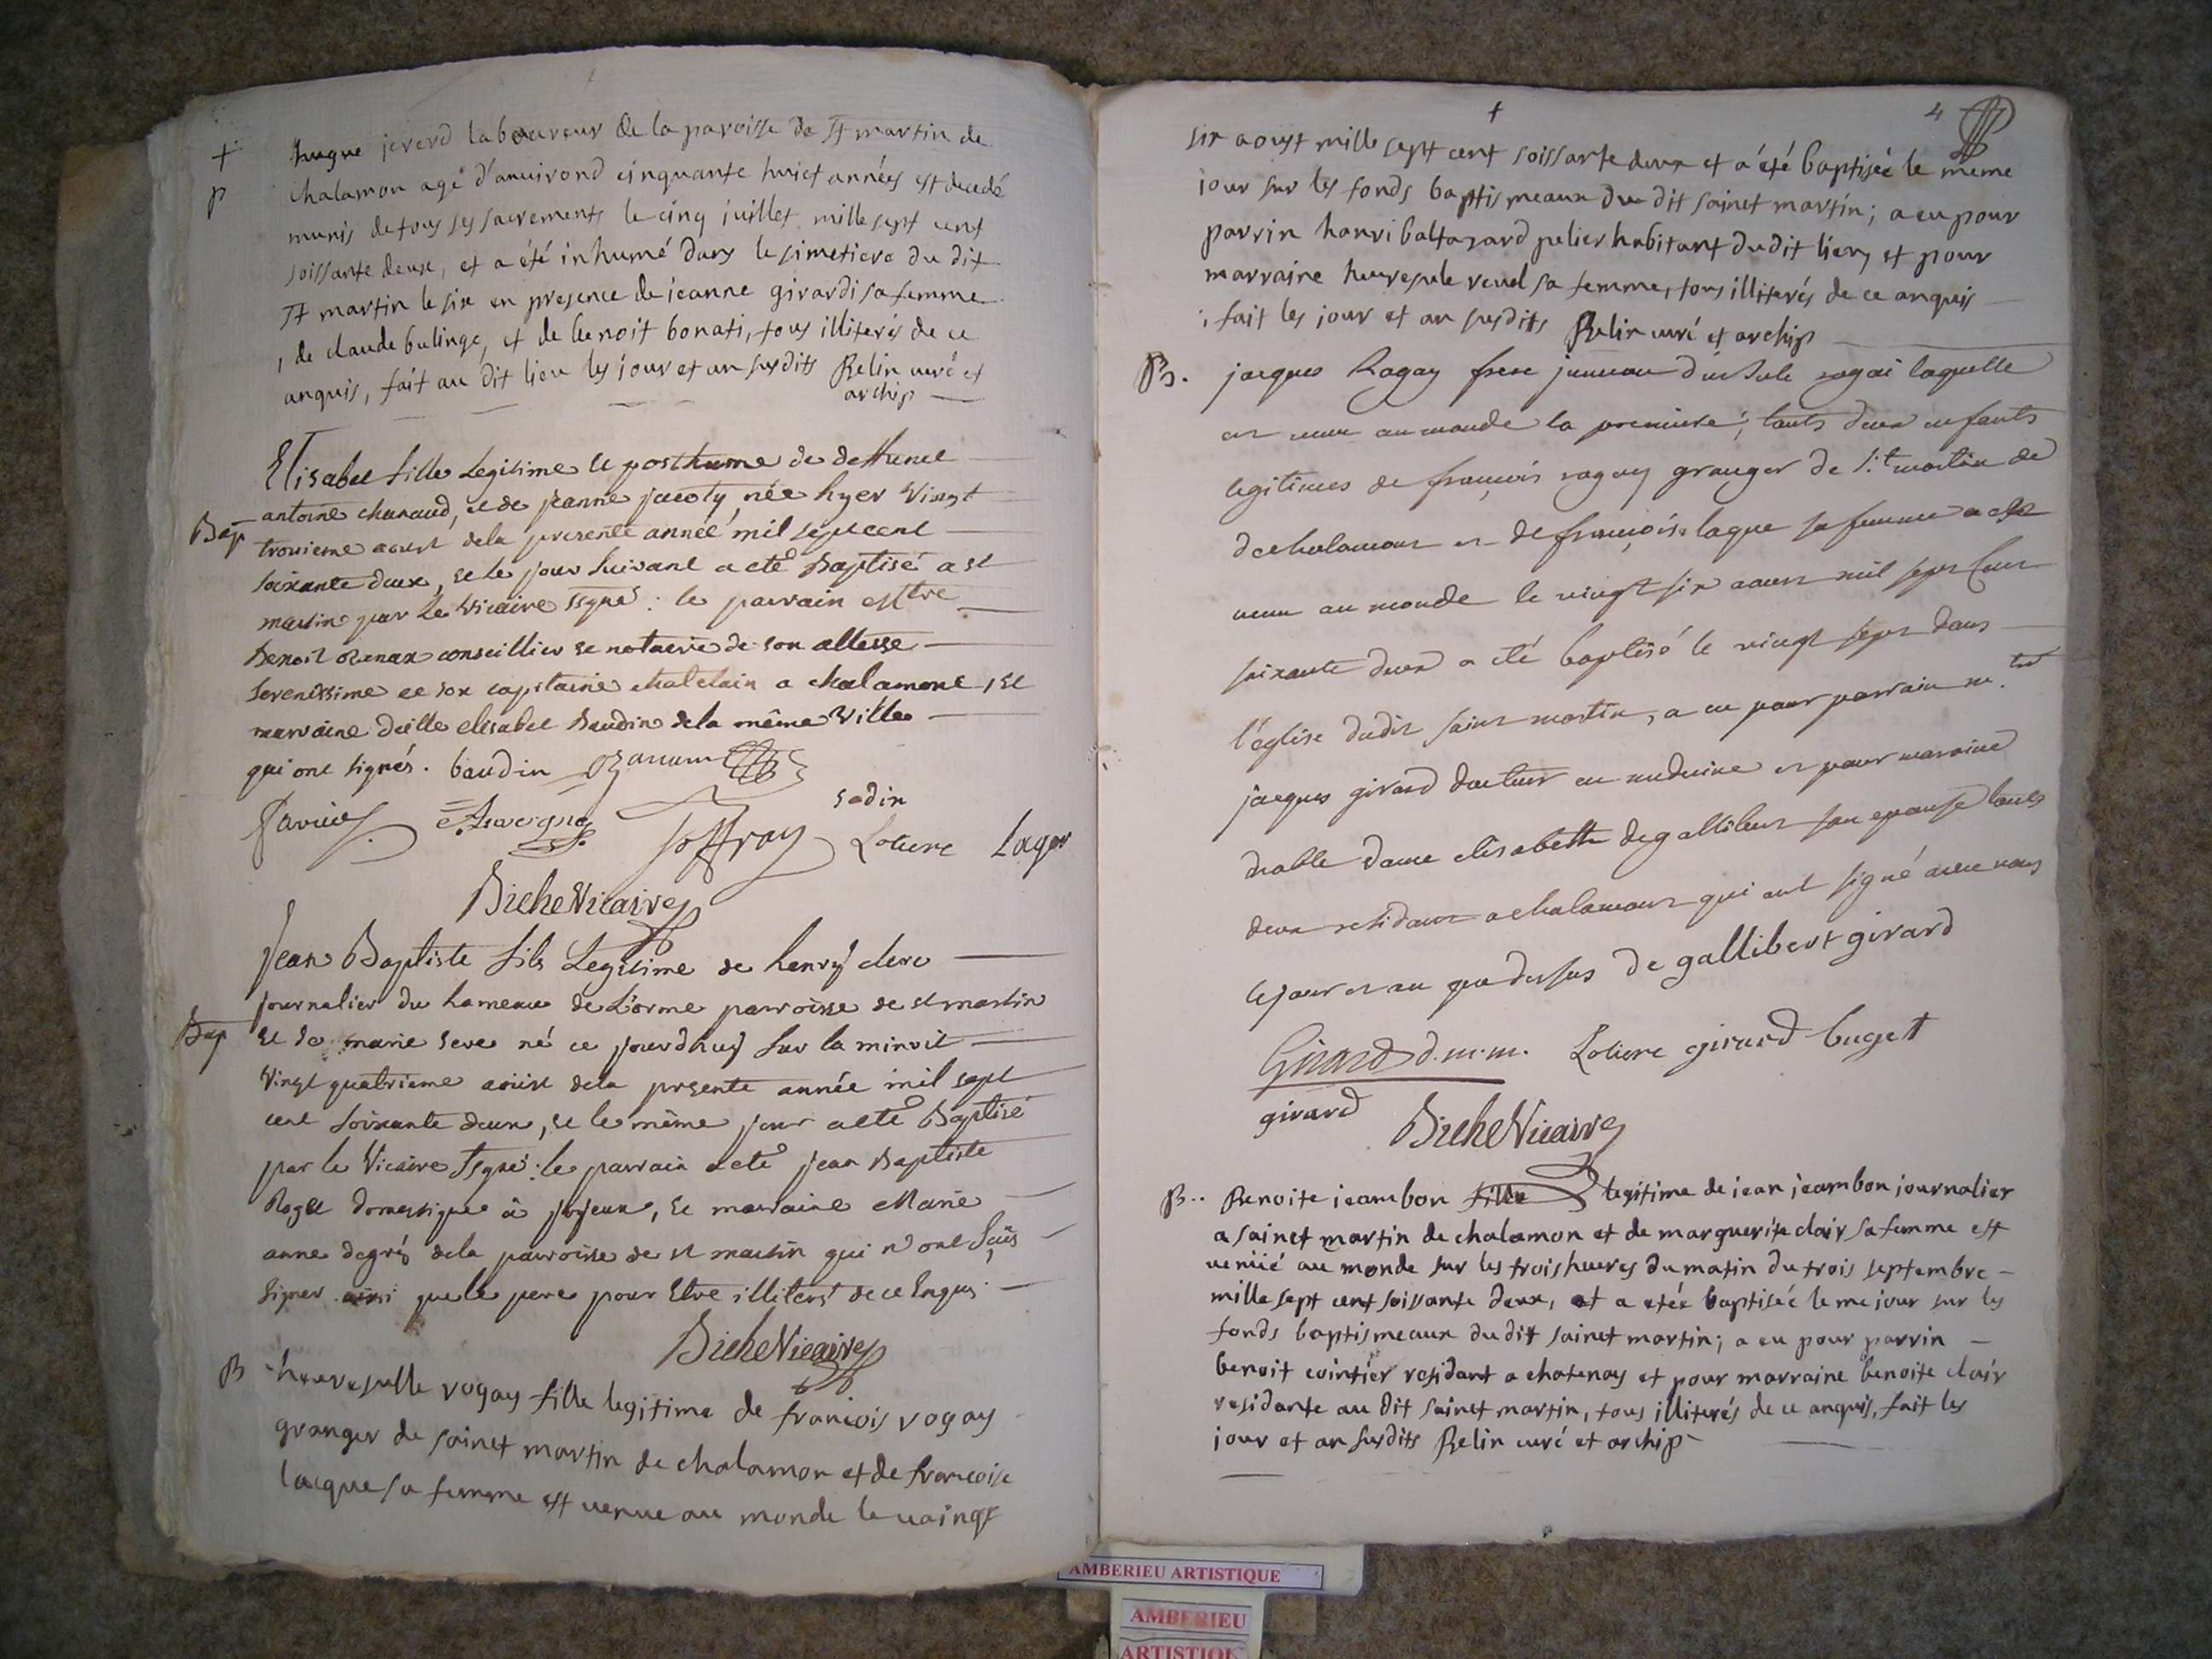 + hugue jererd laboureur de la paroisse de St martin de
p chalamon agé d'anuirond cinquante huict années est decedé
munis de tous ses sacrements le cinq juillet mille sept cent
soissante deux, et a été inhumé dans le simetiere du dit
St martin le six en presence de jeanne girardi sa femme
, de claude bulinge, et de benoit bonati, tous illiterés de ce
anquis, fait au dit lieu les jour et an susdits Belin curé et
archip
Elisabet fille Legitime et posthume de deffunct
antoine chanaud, et de jeanne jacoty, née hyer vingt
Bap
troisieme aoust dela presente année mil sept cent
soixante deux, et le jour suivant a eté Baptisé a st
martin par le vicaire ssgné : le parrain est tre
Benoit ozanan conseillier et notaire de son altesse
serenissime et son capitaine chatelain a chalamont, et
marraine delle elisabet baudin dela même ville
qui ont signés. baudin Ozanam
sadin
Joffray Loliere Lager
Biche Vicaire
Jean Baptiste fils Legitime de henry clerc
journalier du hameau de L'orme parroisse de st martin
Bap et de marie seve né ce jourdhuy sur la minuit
vingt quatrieme aoüst dela presente année mil sept
cent soixante deux, et le même jour a eté Baptisé
par le vicaire ssgné : le parrain a eté jean Baptiste
Roget domestique à joyeux, et marraine Marie
anne degrés dela parroisse de st martin qui n'ont sçûs
signer ainsi que le pere pour Etre illiteré de ce Enquis
Biche Vicaire
B heuresulle rogay fille legitime de francois rogay
granger de sainct martin de chalamon et de francoise
lacque sa femme est venue au monde le vaingt
+
4
six aoust mille sept cent soissante deux et a été baptisée le meme
jour sur les fonds baptismeaux du dit sainct martin; a eu pour
parrin hanri baltazard pelier habitant du dit lieu, et pour
marraine heuresule revel sa femme, tous illiterés de ce anquis
, fait les jour et an susdits Belin curé et archip
B. jacques Ragay frere jumeau d'ursule ragai laquelle
est venu au monde la premiere; touts deux enfants
legitimes de françois ragay granger de St martin de
de chalamont et de françoise laque sa femme a est
venu au monde le vingt six aoust mil sept cent
soixante deux a été baptisé le vingt sept dans
l'église dudit saint martin, a eu pour parrain m.
jacques girard docteur en medecine et pour maraine
dame elisabeth degallibert son epouse touts
deux residant a chalamont qui ont signé avec nous
le jour et an que dessus de gallibert girard
Girard d.m.m. Loliere girard buget
girard Biche Vicaire
B.. Benoite jeambon fille legitime de jean jeambon journalier
a sainct martin de chalamon et de marguerite clair sa femme est
venüe au monde sur les trois heures du matin du trois septembre
mille sept cent soissante deux, et a etée baptisée le me jour sur les
fonds baptismeaux du dit sainct martin; a eu pour parrin
benoit cointier residant a chatenay et pour marraine benoite clair
residante au dit sainct martin, tous illiterés de ce anquis, fait les
jour et an susdits Belin curé et archip
AMBERIEU ARTISTIQUE
AMBERIEU
ARTISTIQUE